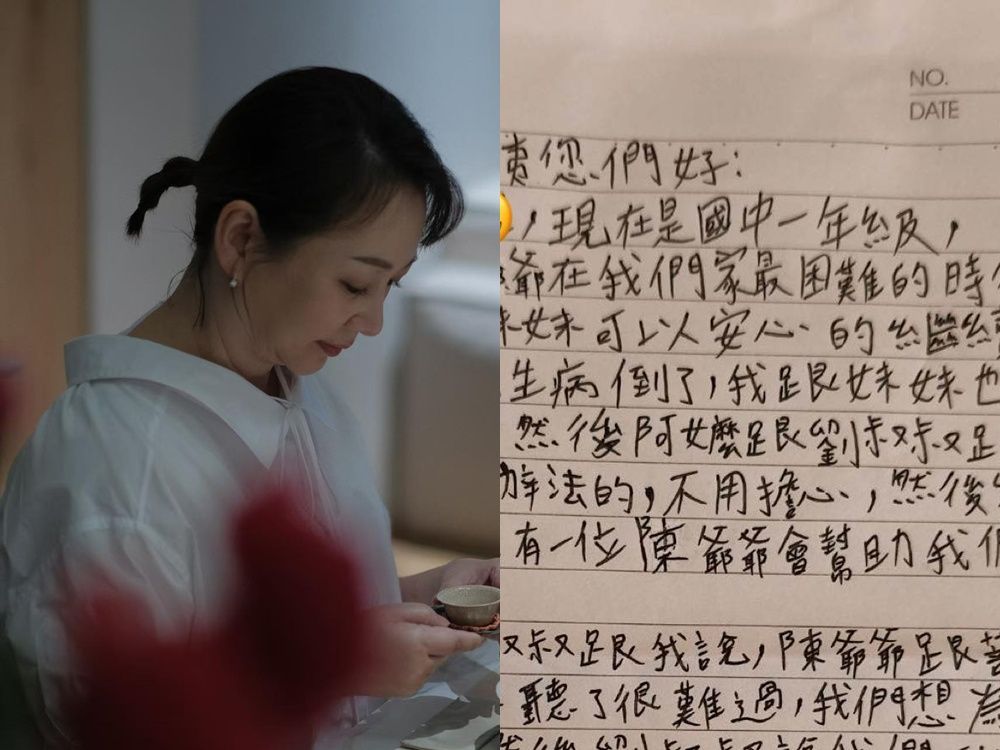 NO.
DATE
您們好:
,現在是國中一年級,
爺在我們家最困難的時
妹可以安心的繼
生病倒了,我跟妹妹也
然後阿嬤跟劉叔叔跟
辦法的,不用擔心,然後
有一位陳爺爺會幫助我們
叔叔跟我說,陳爺爺跟
聽了很難過,我們想為